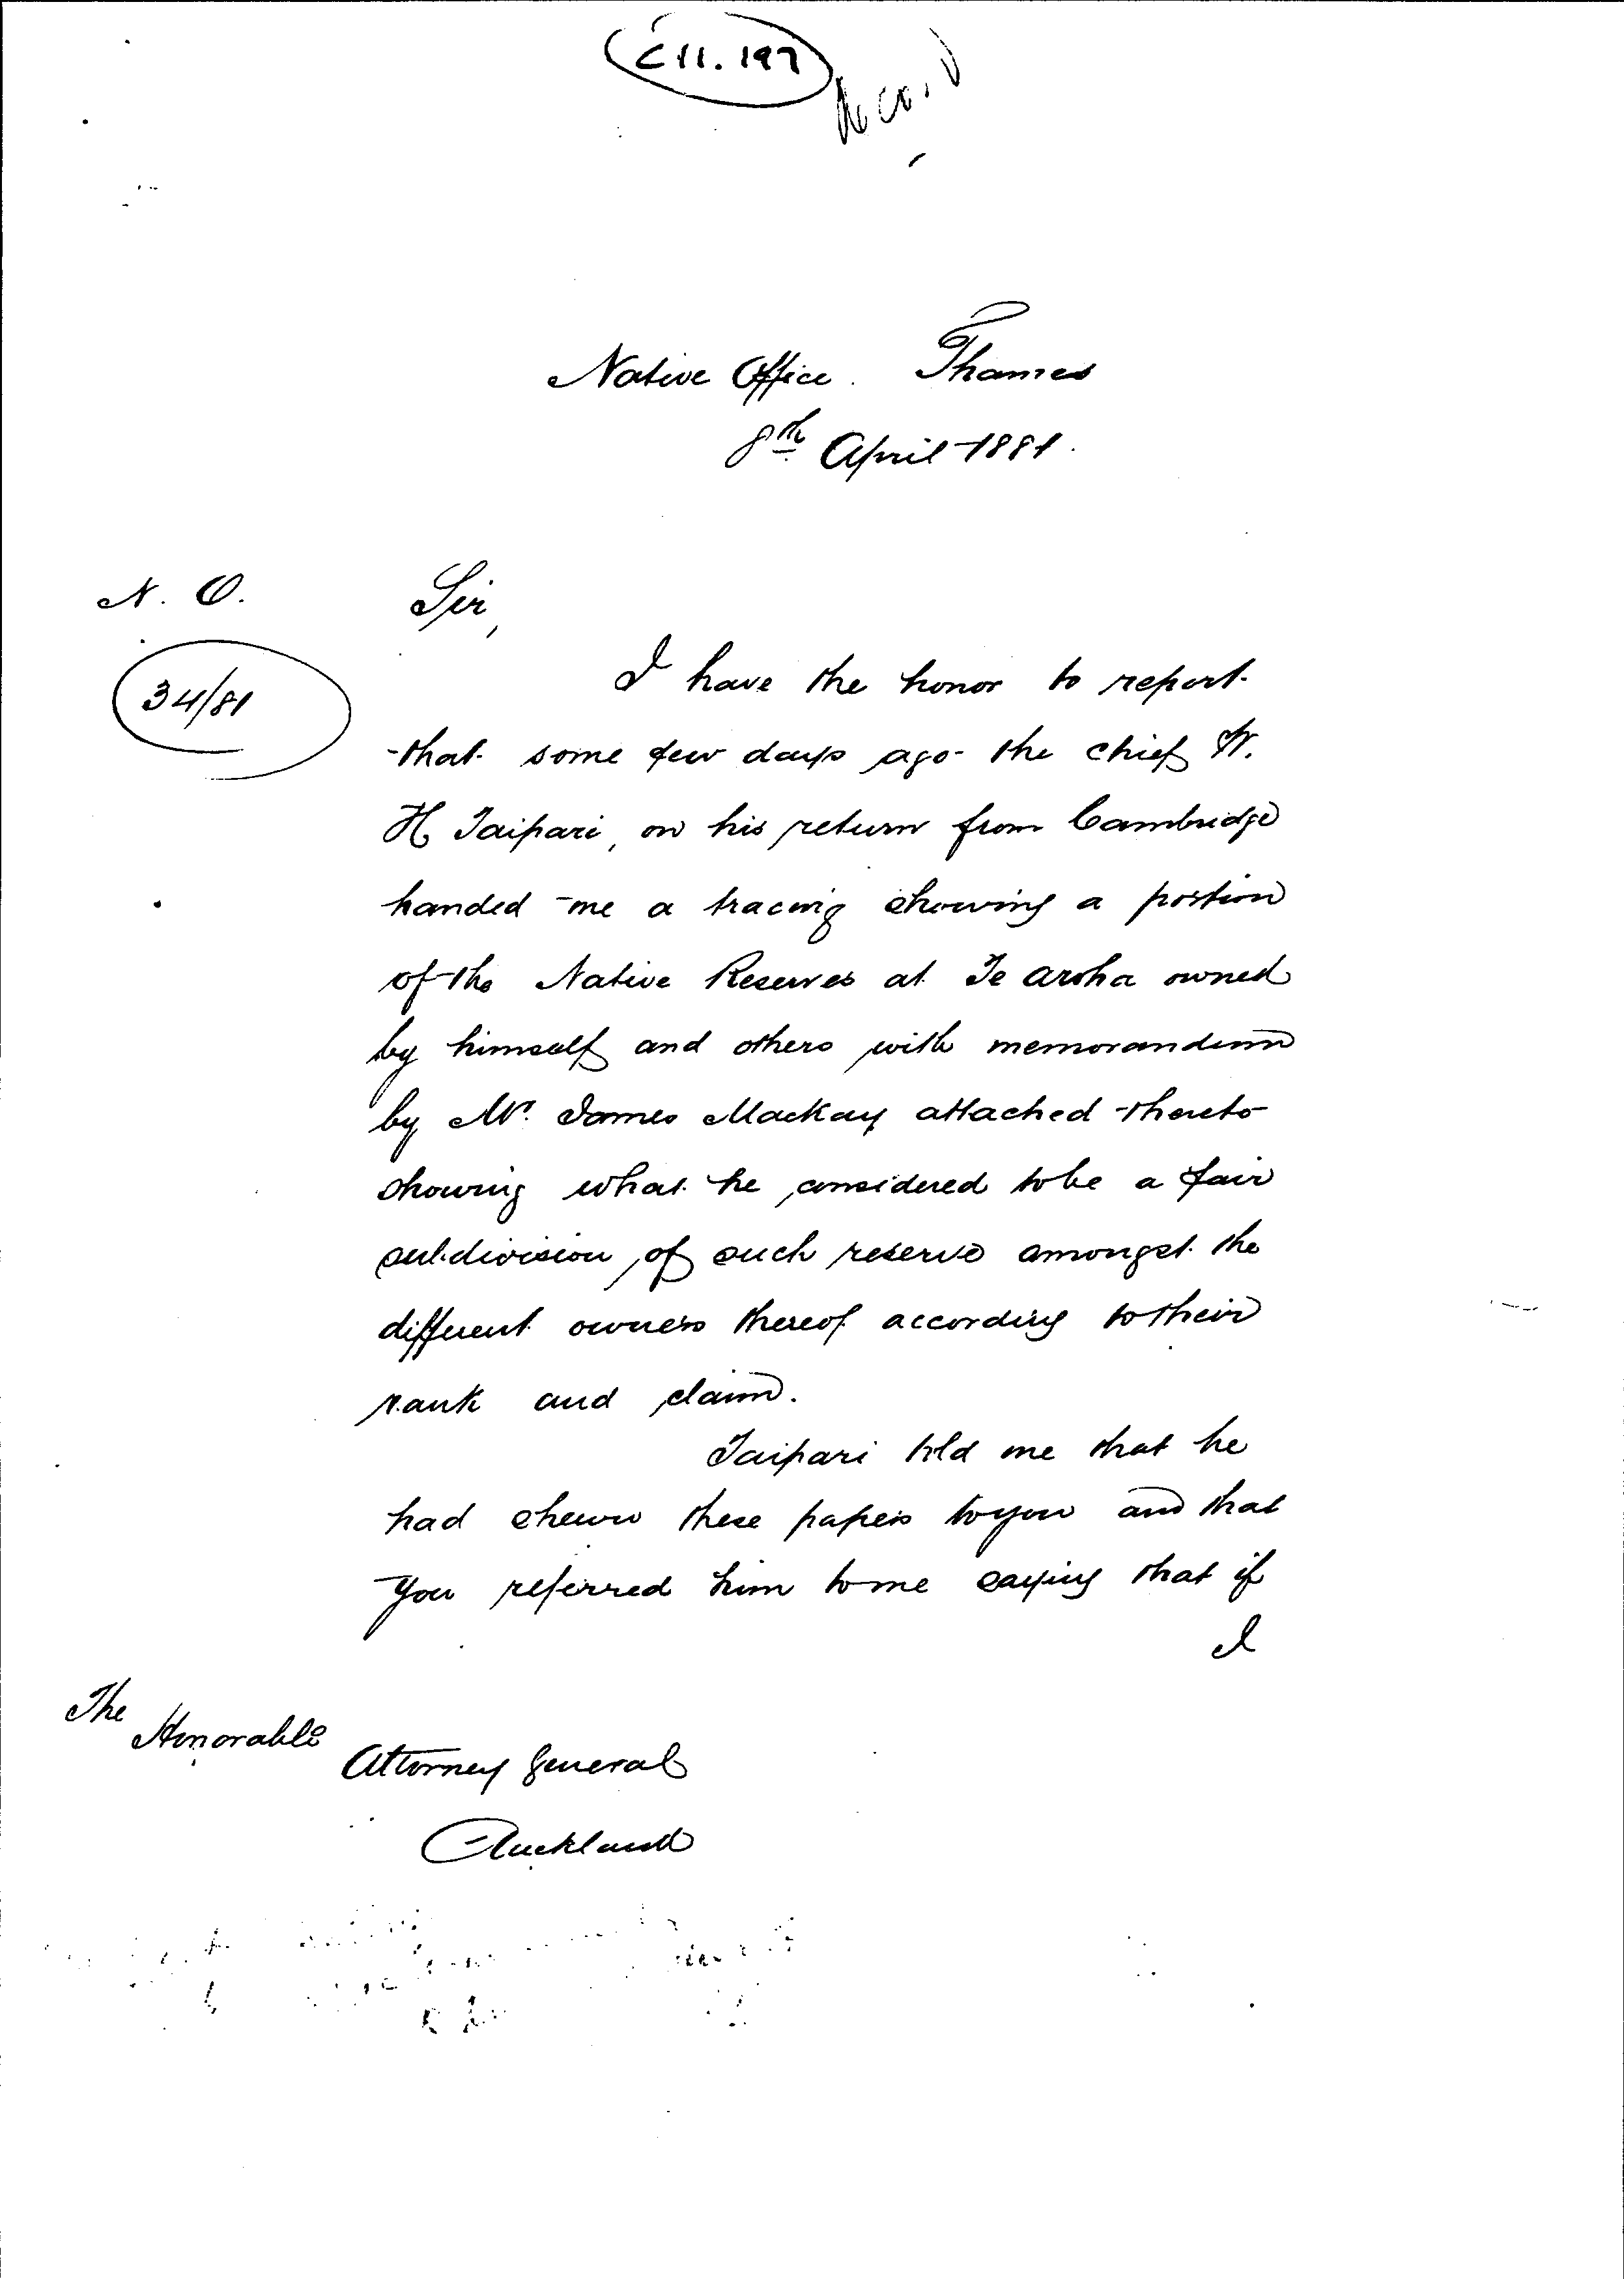 C11. 197
Native Office. Thames
8th April 1881.
N. O.
34/81
Sir,
I have the honor to report
that some few days ago the chief W.
H. Taipari, on his return from Cambridge
handed me a tracing showing a portion
of the Native Reserves at Te Aroha owned
by himself and others with memorandum
by Mr. James Mackay attached thereto
showing what he considered to be a fair
subdivision of such reserve amongst the
different owners thereof according to their
rank and claim.
Taipari told me that he
had shewn these papers to you and that
you referred him to me saying that if
I
The
Honorable
Attorney General
Auckland